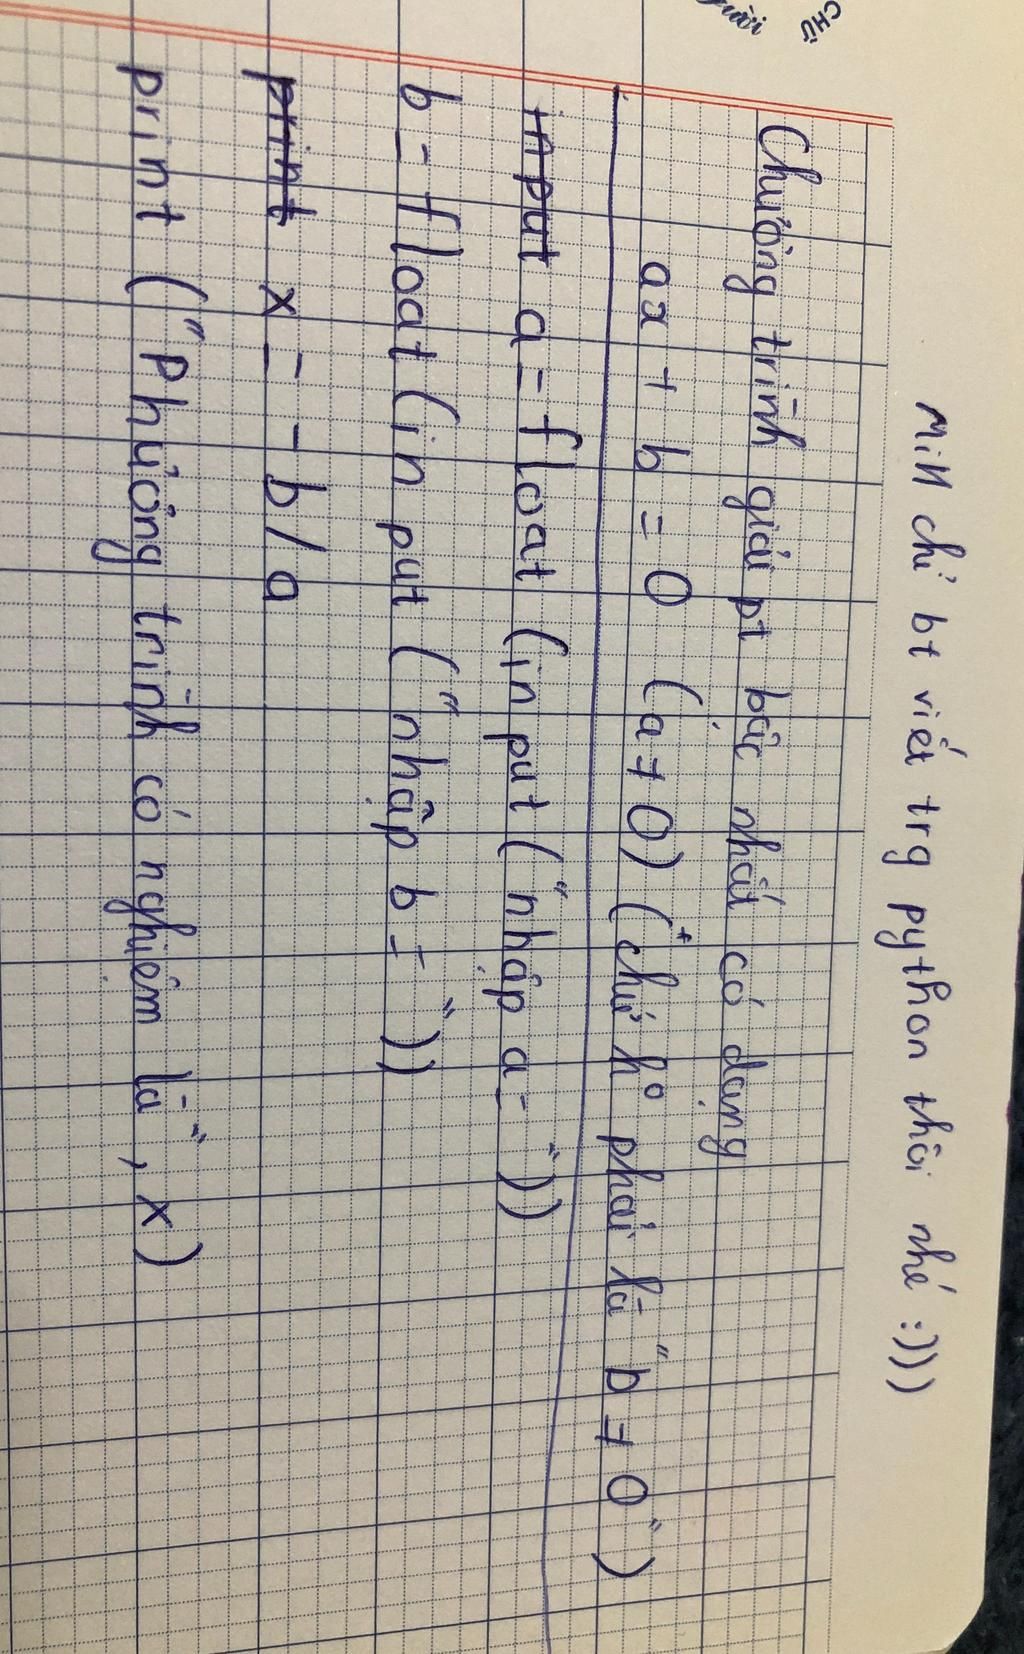 CHỮ
Min chỉ bt viết trg python thôi nhé :)))
Chương trình giải pt bậc nhất có dạng
ax + b = 0 (a ≠ 0) (chứ ko phải là "b ≠ 0")
input a = float (input ("nhập a = "))
b = float (input ("nhập b = "))
print x = - b / a
print ("Phương trình có nghiệm là", x)